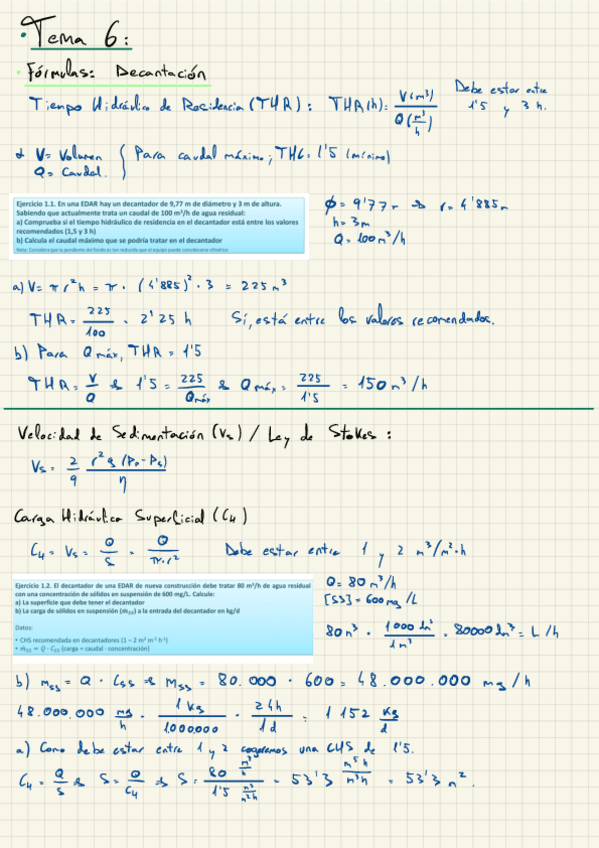 Tema 6:
Fórmulas: Decantación
Tiempo Hidráulico de Residencia (THR): THR(h) = V(m³) / Q(m³/h) Debe estar entre 1'5 y 3 h.
V = Volumen
Q = Caudal.
Para caudal máximo; THG = 1'5 (mínimo)
Ejercicio 1.1. En una EDAR hay un decantador de 9,77 m de diámetro y 3 m de altura.
Sabiendo que actualmente trata un caudal de 100 m³/h de agua residual:
a) Comprueba si el tiempo hidráulico de residencia en el decantador está entre los valores
recomendados (1,5 y 3 h)
b) Calcula el caudal máximo que se podría tratar en el decantador
Nota: Considera que la pendiente del fondo es tan reducida que el equipo puede considerarse cilíndrico
φ = 9'77 m → r = 4'885 m
h = 3m
Q = 100 m³/h
a) V = π r² h = π · (4'885)² · 3 = 225 m³
THR = 225 / 100 = 2'25 h Sí, está entre los valores recomendados.
b) Para Q máx, THR = 1'5
THR = V / Q → 1'5 = 225 / Qmáx → Q máx = 225 / 1'5 = 150 m³/h
Velocidad de Sedimentación (Vs) / Ley de Stokes:
Vs = 2 / 9 r² g (Po - Ps) / η
Carga Hidráulica Superficial (CH)
CH = Vs = Q / S = Q / π·r² Debe estar entre 1 y 2 m³/m²·h
Ejercicio 1.2. El decantador de una EDAR de nueva construcción debe tratar 80 m³/h de agua residual
con una concentración de sólidos en suspensión de 600 mg/L. Calcule:
a) La superficie que debe tener el decantador
b) La carga de sólidos en suspensión (ṁss) a la entrada del decantador en kg/d
Datos:
• CHS recomendada en decantadores (1 – 2 m³ m⁻² h⁻¹)
• ṁss = Q · Css (carga = caudal · concentración)
Q = 80 m³/h
[SS] = 600 mg/L
80 m³ · 1000 dm³ / 1 m³ = 80000 dm³ = L/h
b) mss = Q · Css → Mss = 80.000 · 600 = 48.000.000 mg/h
48.000.000 mg/h · 1 kg / 1.000.000 · 24h / 1d = 1 152 kg/d
a) Como debe estar entre 1 y 2 cogeremos una CHS de 1'5.
CH = Q / S → S = Q / CH → S = 80 m³/h / 1'5 m³/m²h = 53'3 m⁵h / m³h = 53'3 m².